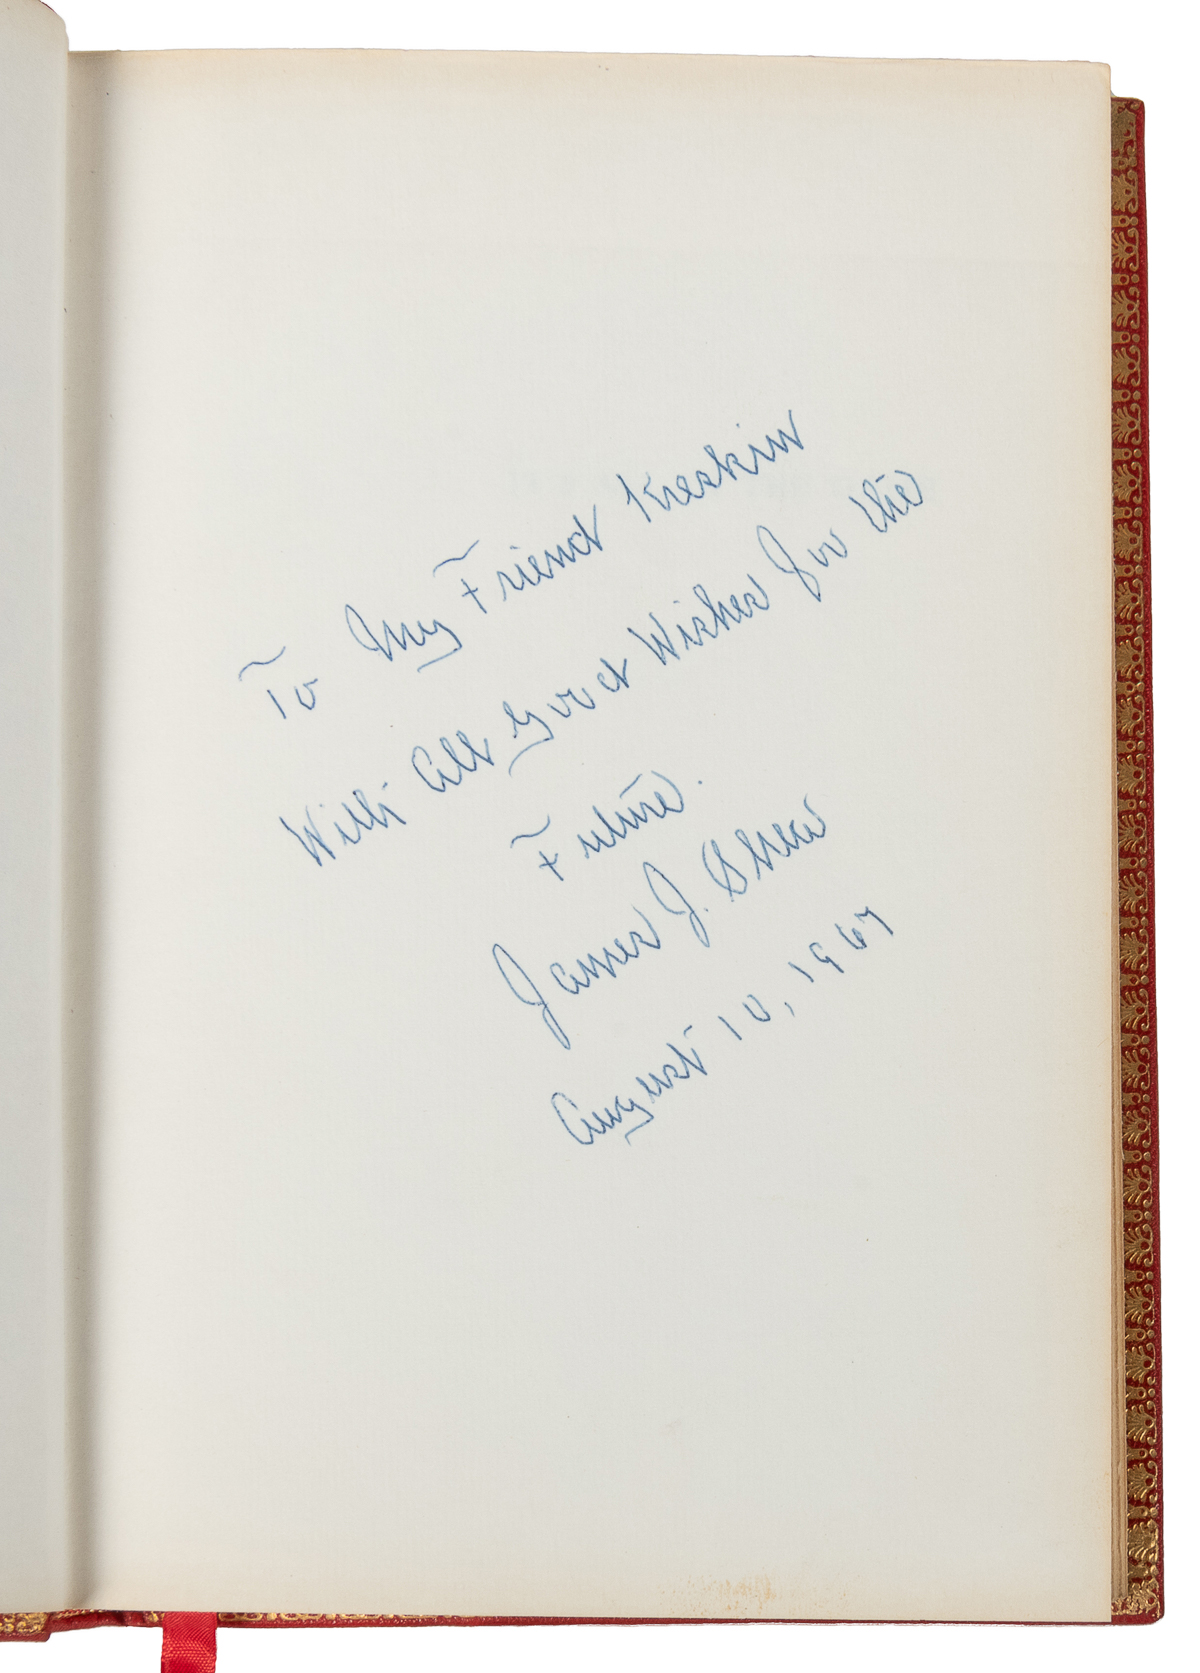 To My Friend Kreskin
With All Good Wishes For the
Future.
James J. Shea
August 10, 1967